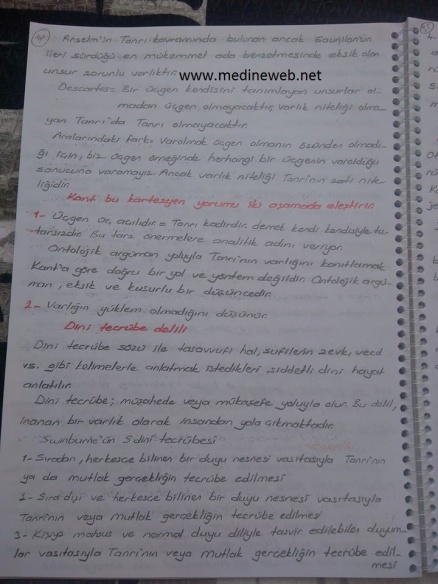 Anselm'in Tanrı kavramında bulunan ancak Gaunilon'un
ileri sürdüğü en mükemmel ada benzetmesinde eksik olan
unsur zorunlu varlıktır.
www.medineweb.net
Descartes: Bir üçgen kendisini tanımlayan unsurlar ol-
madan üçgen olmayacaktır, varlık niteliği olma-
yan Tanrı'da Tanrı olmayacaktır.
Aralarındaki fark: Varolmak üçgen olmanın özünden olmadı-
ğı için, biz üçgen örneğinde herhangi bir üçgenin varolduğu
sonucuna varamayız. Ancak varlık niteliği Tanrı'nın zati nite-
liğidir.
Kant bu kartezyen yorumu iki aşamada eleştirir.
1- Üçgen üç açılıdır. = Tanrı kadirdir. demek kendi kendisiyle tu-
tarsızdır. Bu tarz önermelere analitik adını veriyor.
Ontolojik argüman yoluyla Tanrı'nın varlığını kanıtlamak
Kant'a göre doğru bir yol ve yöntem değildir. Ontolojik argü-
man, eksik ve kusurlu bir düşüncedir.
2- Varlığın yüklem olmadığını düşünür.
Dini tecrübe delili
Dini tecrübe sözü ile tasavvufi hal, sufilerin zevk, vecd
vs. gibi kelimelerle anlatmak istedikleri şiddetli dini hayat
anlatılır.
Dini tecrübe; müşahede veya mükaşefe yoluyla olur. Bu delil,
inanan bir varlık olarak insandan yola çıkmaktadır.
Swinburne'ün 5 dini tecrübesi
1- Sıradan, herkesce bilinen bir duyu nesnesi vasıtasıyla Tanrı'nın
ya da mutlak gerçekliğin tecrübe edilmesi
2- Sıra dışı ve herkesce bilinen bir duyu nesnesi vasıtasıyla
Tanrı'nın veya mutlak gerçekliğin tecrübe edilmesi
3- Kişiye mahsus ve normal duyu diliyle tasvir edilebilen duyum-
lar vasıtasıyla Tanrı'nın veya mutlak gerçekliğin tecrübe edil-
mesi